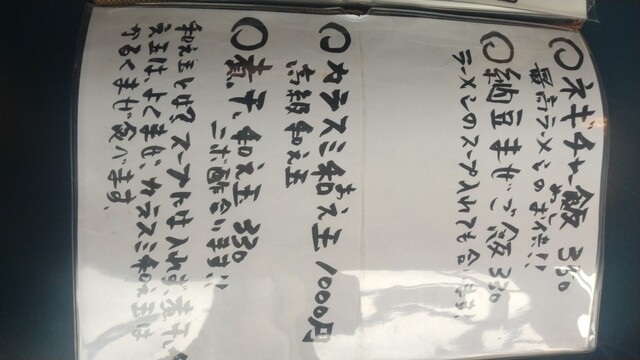 ○ ネギチャー飯 330
最高ラーメンのお供!!
○ 納豆まぜご飯 330
ラーメンのスープ入れても合います!
○ カラスミ和え玉 1000円
高級和え玉
○ 煮干和え玉 330
ニボ酢合います!!
和え玉とは? スープには入れず、煮干和
え玉は、よくまぜ カラスミ和え玉は
かるくまぜ 食べます。